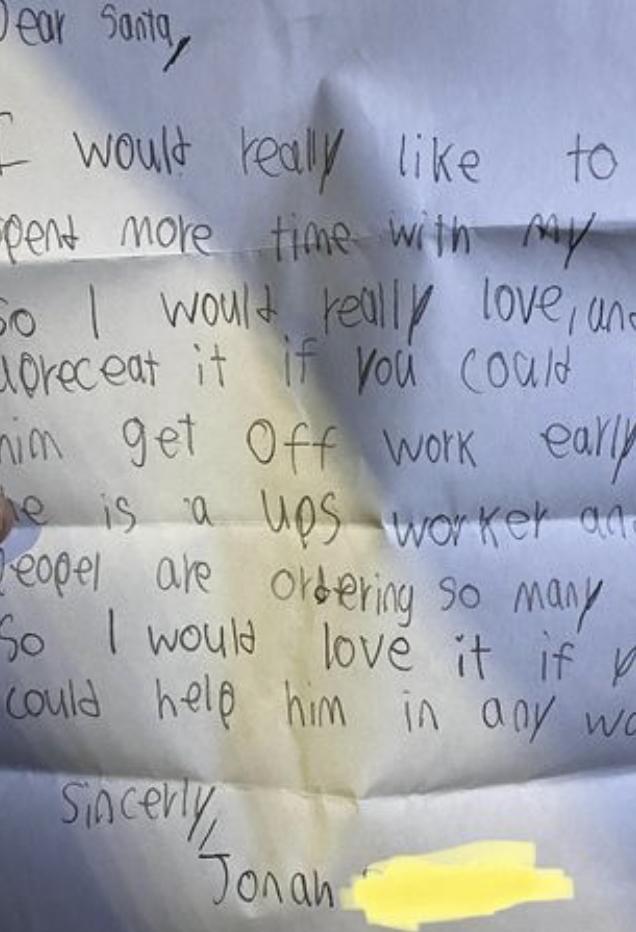 Dear Santa,
I would really like to
spent more time with my
so I would really love, and
apreceat it if you could
him get off work early
he is a ups worker and
peopel are ordering so many
So I would love it if y
could help him in any wa
Sincerly,
Jonah